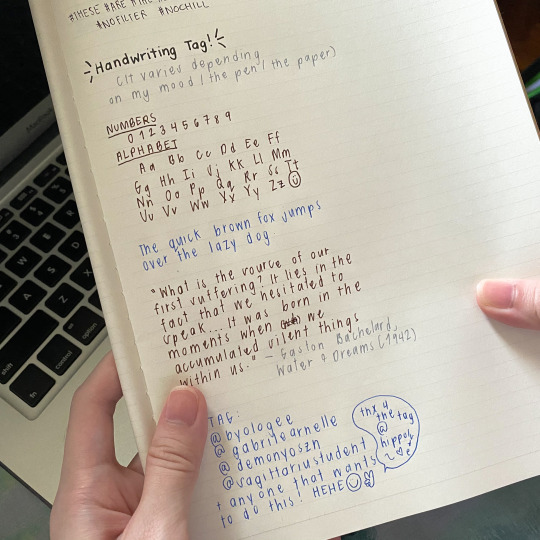 #THESE #ARE #THE
#NOFILTER #NOCHILL
Handwriting Tag!
(It varies depending
on my mood / the pen / the paper)
NUMBERS
0 1 2 3 4 5 6 7 8 9
ALPHABET
Aa Bb Cc Dd Ee Ff
Gg Hh Ii Jj KK Ll Mm
Nn Oo Pp Qq Rr Ss Tt
Uu Vv Ww Xx Yy Zz
The quick brown fox jumps
over the lazy dog
"What is the source of our
first suffering? It lies in the
fact that we hesitated to
speak... It was born in the
moments when we
accumulated silent things
within us." - Gaston Bachelard,
Water & Dreams (1942)
TAG:
@byologee
@gabrielearnelle
@demonyoszn
@sagittariustudent
+ anyone that wants
to do this! HEHE
thx 4
the tag
@